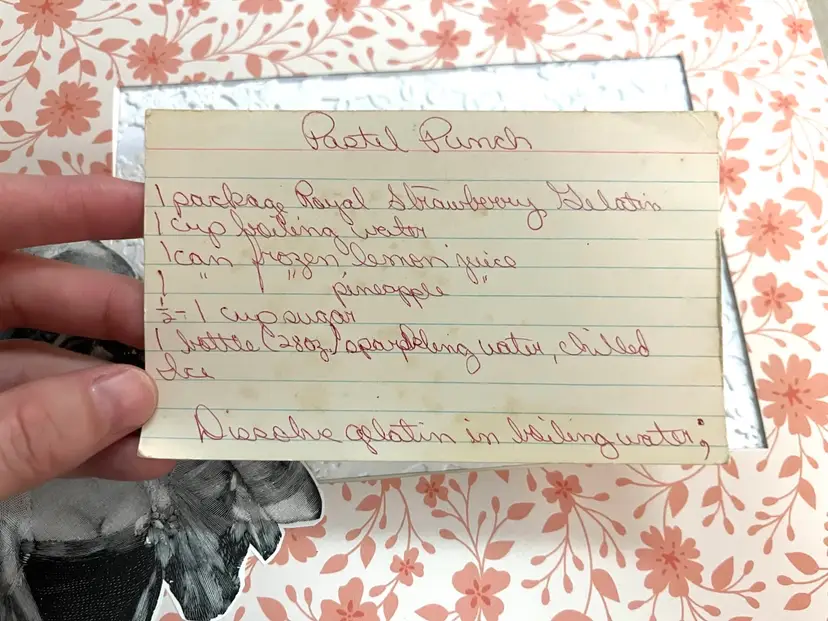 Pastel Punch
1 package Royal Strawberry Gelatin
1 cup boiling water
1 can frozen lemon juice
1 " " pineapple "
1/2-1 cup sugar
1 bottle (28oz) sparkling water, chilled
Ice
Dissolve gelatin in boiling water;